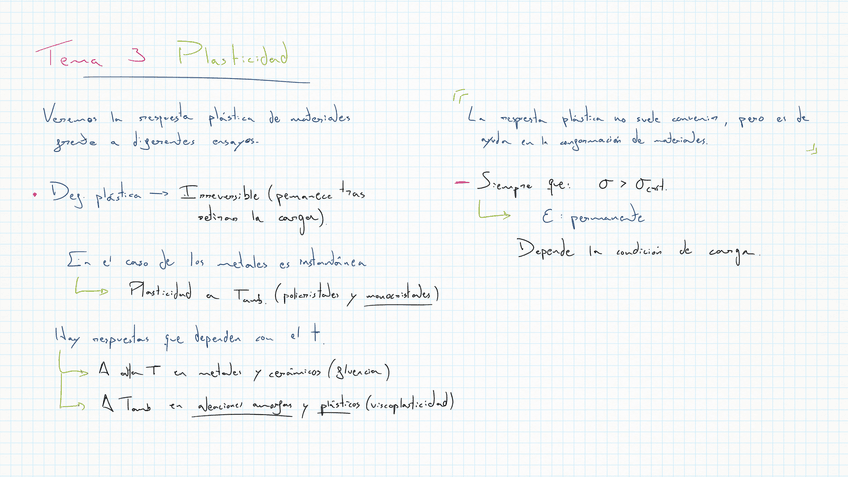 Tema 3 Plasticidad
Veremos la respuesta plástica de materiales
frente a diferentes ensayos.
• Def. plástica → Irreversible (pemanece tras
retirar la carga)
En el caso de los metales es instantánea
Plasticidad a Tamb. (policristales y monocristales)
Hay respuestas que dependen con el t.
A alta T en metales y cerámicos (fluencia)
A Tamb en aleaciones amorfas y plásticos (viscoplasticidad)
La respesta plástica no suele convenir, pero es de
ayuda en la conformación de materiales.
– Siempre que: σ > σcrít.
ε: permanente
Depende la condición de carga.